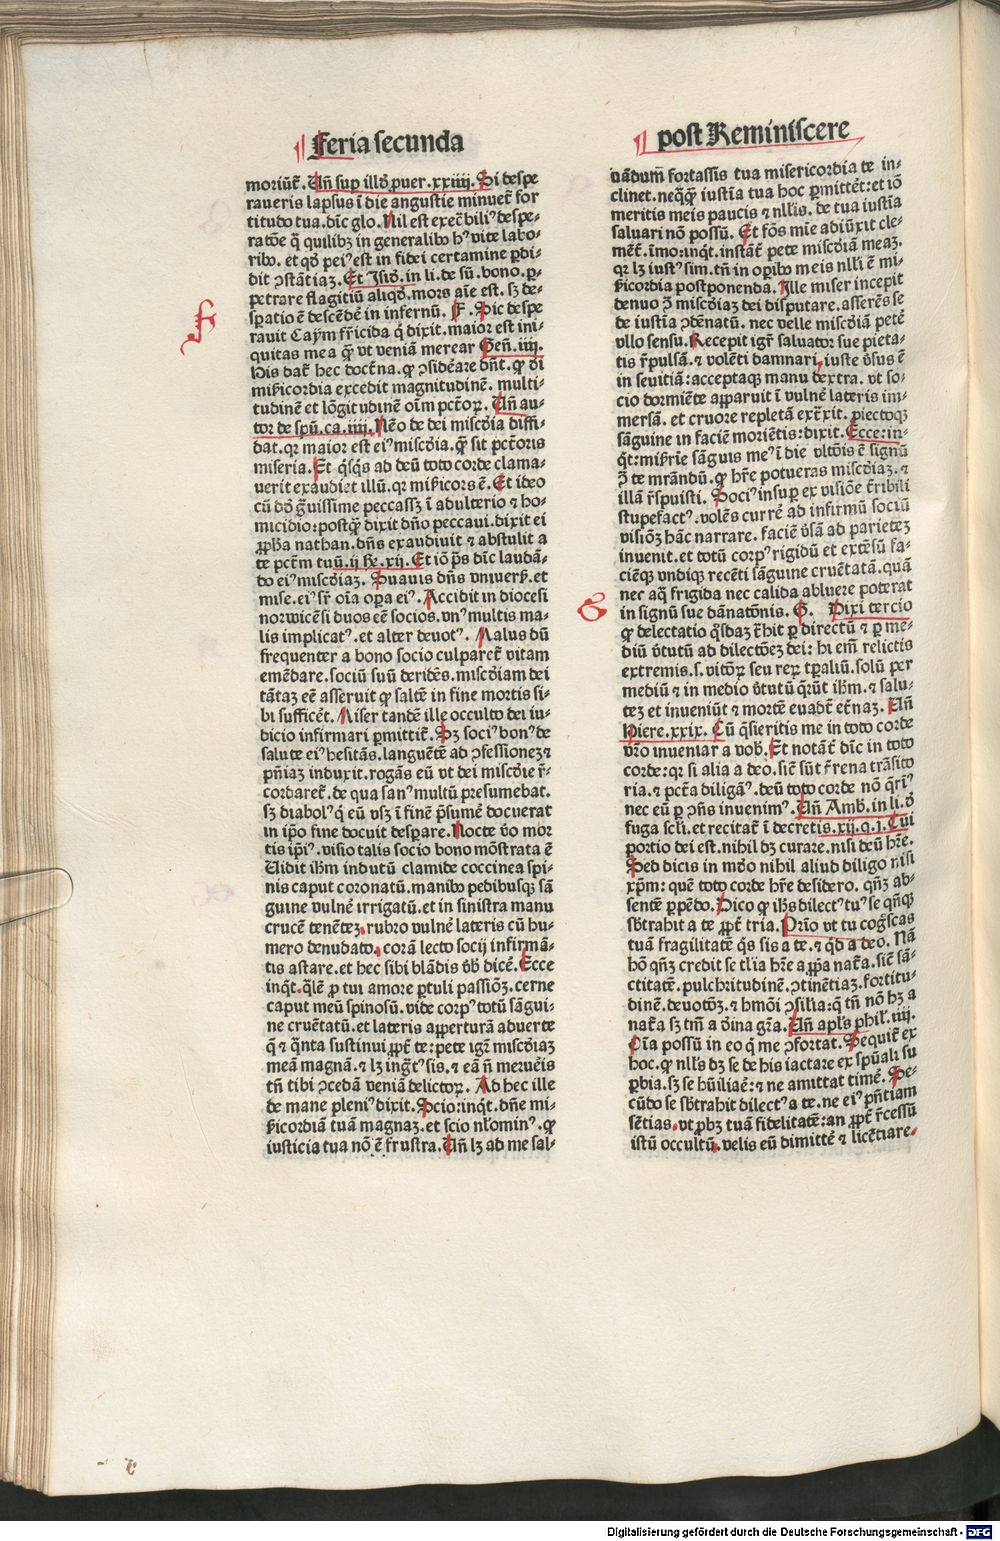 Feria secunda
moriūt̃. Uñ sup illð ꝓuer. xxiiij. Si despe
raueris lapsus ī die angustie minuet̃ for
titudo tua. dic̄ glo. Nil est exec̃bili⁹ despe-
ratōe q̃ quilibʒ in generalibꝰ h⁹ vite labo-
ribꝰ. et qð pei⁹ est in fidei certamine ꝑdi-
dit ꝯstātiaʒ. Et Isið. in li. de sū. bono. ꝑ-
petrare flagitiū aliqð. mors aīe est. sʒ de-
sꝑatio ē descēdē in infernū. F. Sic despe
rauit Cayʒ̄ fr̃icida q̄ dixit. maior est ini-
quitas mea q̃ꝫ vt veniā merear Geñ. iiij.
His dat̃ hec doct̃na. ꝙ ꝯsiderare dn̄t. ꝙ di
mīẜicordia excedit magnitudinē. multi-
tudinē et lōgitudinē oīm pct̄oꝝ. Uñ au-
tor de spū. ca. iiij. Nēo de dei miscðia diffi-
dat. qꝛ maior est ei⁹ miscðia. q̃ꝫ sit pct̄oris
miseria. Et q̄sq̄s ad deū toto corde clama-
uerit exaudiet illū. qꝛ mīẜicors ē. Et ideo
cū dð g̃uissime peccassʒ ī adulterio ⁊ ho-
micidio: postq̃ꝫ dixit dño peccaui. dixit ei
ꝓpħa nathan. dn̄s exaudiuit ⁊ abstulit a
te pct̄m tuū. ij Re. xij. Et iō p̄s dic̄ laudā-
do ei⁹ miscðiaʒ. Suauis dn̄s vniuerẜ. et
mise. ei⁹ sr̄ oīa oꝑa ei⁹. Accidit in diocesi
norwicēsi duos eē socios. vn⁹ multis ma-
lis implicat⁹. et alter deuot⁹. Malus dū
frequenter a bono socio culparet̃ vitam
emēdare. sociū suū deridēs. miscðiam dei
tātaʒ eē asseruit ꝙ saltē in fine mortis si-
bi sufficēt. Miser tandē ille occulto dei iu-
dicio infirmari ꝑmittit̃. Sʒ soci⁹ bon⁹ de
salute ei⁹ hesitās. languētē ad ꝯfessioneʒ ⁊
pn̄iaʒ induxit. rogās eū vt dei miscðie r̄-
cordaret̃. de qua san⁹ multū presumebat.
sʒ diabol⁹ q̄ eū vsʒ ī finē p̄sumē docuerat
in ip̄o fine docuit desꝑare. Nocte v̄o mor
tis ip̄i⁹. visio talis socio bono mōstrata ē
Uidit iħm indutū clamide coccinea spi-
nis caput coronatū. manibꝰ pedibusqꝫ sā
guine vulnē irrigatū. et in sinistra manu
crucē tenēteʒ. rubro vulnē lateris cū hu-
mero denudato. corā lecto socij infirmā-
tis astare. et hec sibi blādis v̄b̄ dicē. Ecce
inq̄t. q̄lē ꝓ tui amore ꝑtuli passiōʒ. cerne
caput meū spinosū. vide corp⁹ totū sāgui-
ne cruētatū. et lateris apꝑerturā aduerte
q̃ ⁊ q̄nta sustinui ꝓpt̃ te: pete igr̃ miscðiaʒ
meā magnā. ⁊ lʒ ing̃t⁹ sis. ⁊ eā ñ meruēis
tñ tibi ꝯcedā veniā delictoꝝ. Ad hec ille
de mane pleni⁹ dixit. Scio: inq̄t. dñe mi-
ẜicordiā tuā magnaʒ. et scio nłomin⁹. ꝙ
iusticia tua nō ē frustra. Uñ lʒ ad me sal-
F
post Reminiscere
uādum̄ fortassis tua misericordia te in-
clinet. neq̄q̃ iustīa tua hoc ꝑmittēt: et iō
meritis meis paucis ⁊ nłłis. de tua iustīa
saluari nō possū. Et fōs mīe adiūxit cle-
mēt̃. īmo: inq̄t. instāt̃ pete miscðiā meaʒ.
qꝛ lʒ iust⁹ sim. tñ in oꝑibꝰ meis nłłi ē mi-
ẜicordia postponenda. Ille miser incepit
denuo ꝯ̄ miscðiaʒ dei disputare. asserēs se
de iustīa ꝯdēnatū. nec velle miscðiā petē
vllo sensu. Recepit igr̃ saluator sue pieta-
tis r̄pulsā. ⁊ volēti damnari, iuste v̄sus ē
in seuitiā: acceptaqꝫ manu dextra. vt so-
cio dormiēte apparuit ī vulnē lateris im-
mersā. et cruore repletā ext̃xit. ꝓiectoqꝫ
sāguine in faciē moriētis: dixit. Ecce: in-
q̄t: mīẜie sāguis me⁹ ī die vltōis ē signū
ꝯ̄ te mr̄andū. ꝙ hr̄e potueras miscðiaʒ. ⁊
illā r̄spuisti. Soci⁹ insuꝑ ex visiōe t̃ribili
stupefact⁹. volēs currē ad infirmū sociū
visiōʒ hāc narrare. faciē v̄sā ad parieteʒ
inuenit. et totū corp⁹ rigidū et extēsū fa-
ciēqꝫ vndiqꝫ recēti sāguine cruētatā. quā
nec aq̃ frigida nec calida abluere poterat
in signū sue dānatōnis. G. Dixi tercio
ꝙ delectatio q̄sdaʒ t̃hit ꝑ directū ⁊ ꝑ me-
diū v̄tutū ad dilectōeʒ dei: hi em̄ relictis
extremis. s. vitōꝝ seu reꝝ tꝑaliū. solū per
mediū ⁊ in medio v̄tutū q̄rūt iħm. ⁊ salu-
teʒ et inueniūt ⁊ mortē euadt̃ et̃naʒ. Uñ
Hiere. xxix. Cū q̄sieritis me in toto corde
vr̄o inueniar a vob̄. Et notāt̃ dic̄ in toto
corde: qꝛ si alia a deo. sic̄ sūt t̃rena trāsito
ria. ⁊ pct̄a diligā⁹. deū toto corde nō q̄ri⁹
nec eū ꝑ ꝯn̄s inuenim⁹. Uñ Amb. in li. ð
fuga scłi. et recitat̃ ī decretis. xij. q. j. Cui
portio dei est. nihil dʒ curare. nisi deū hr̄e.
Sed dicis in mūdo nihil aliud diligo nisi
xp̄m: quē toto corde hr̄e desidero. qn̄ʒ ab-
sentē ꝑpēdo. Dico ꝙ iħs dilect⁹ tu⁹ se qn̄qꝫ
sb̄trahit a te ꝓpt̃ tria. Prīo vt tu cog̃scas
tuā fragilitatē q̄s sis a te. ⁊ q̄d a deo. Nā
hō qn̄ʒ credit se tłia hr̄e a ꝓpa nat̃a. sic̄ sā-
ctitatē. pulchritudinē. ꝯtinētiaʒ. fortitu-
dinē. deuotōʒ. ⁊ hmōi ꝯsilia: q̄ tñ nō hʒ a
nat̃a sʒ tm̄ a ðina gr̃a. Uñ apłs phił. iiij.
Oīa possū in eo q̄ me ꝯfortat. Sequit̃ ex
hoc. ꝙ nłłs dʒ se de his iactare ex spūali su
ꝑbia. sʒ se hūiliaē: ⁊ ne amittat timē. Se-
cūdo se sb̄trahit dilect⁹ a te. ne ei⁹ pn̄tiam
sētias. vt ꝓbʒ tuā fidelitatē: an ꝓpt̃ r̄cessū
istū occultū. velis eū dimittē ⁊ licētiare.
G
Digitalisierung gefördert durch die Deutsche Forschungsgemeinschaft - DFG